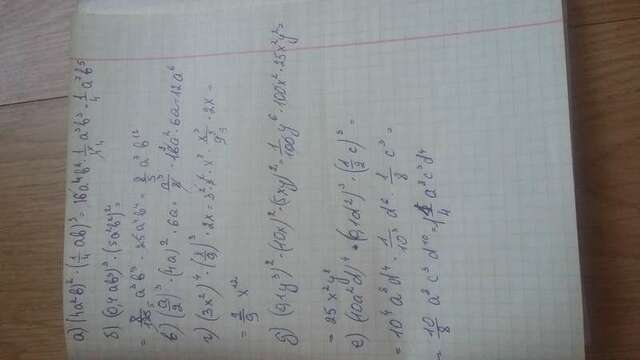 а) (4a²b)² · (1/4 ab)³ = 16a⁴b² · 1/x₄ a³b³ = 1/4 a⁷b⁵
б) (0,4ab³)³ · (5a²b²)² =
= 8/125 a³b⁹ · 25a⁴b⁴ = 8/5 a⁷b¹³
в) (a/2)³ · (4a)² · 6a = a³/8 · 16a² · 6a = 12a⁶
г) (3x²)⁴ · (x/9)³ · 2x = 3⁴ · x⁸ · x³/9³ · 2x =
= 2/9 x¹²
д) (0,1y³)² · (10x)² · (5xy)² = 1/100 y⁶ · 100x² · 25x²y² =
= 25x⁴y⁸
е) (10a²d)⁴ · (0,1d²)³ · (1/2 c)³ =
= 10⁴a⁸d⁴ · 1/10³ d⁶ · 1/8 c³ =
= 10/8 a⁸c³d¹⁰